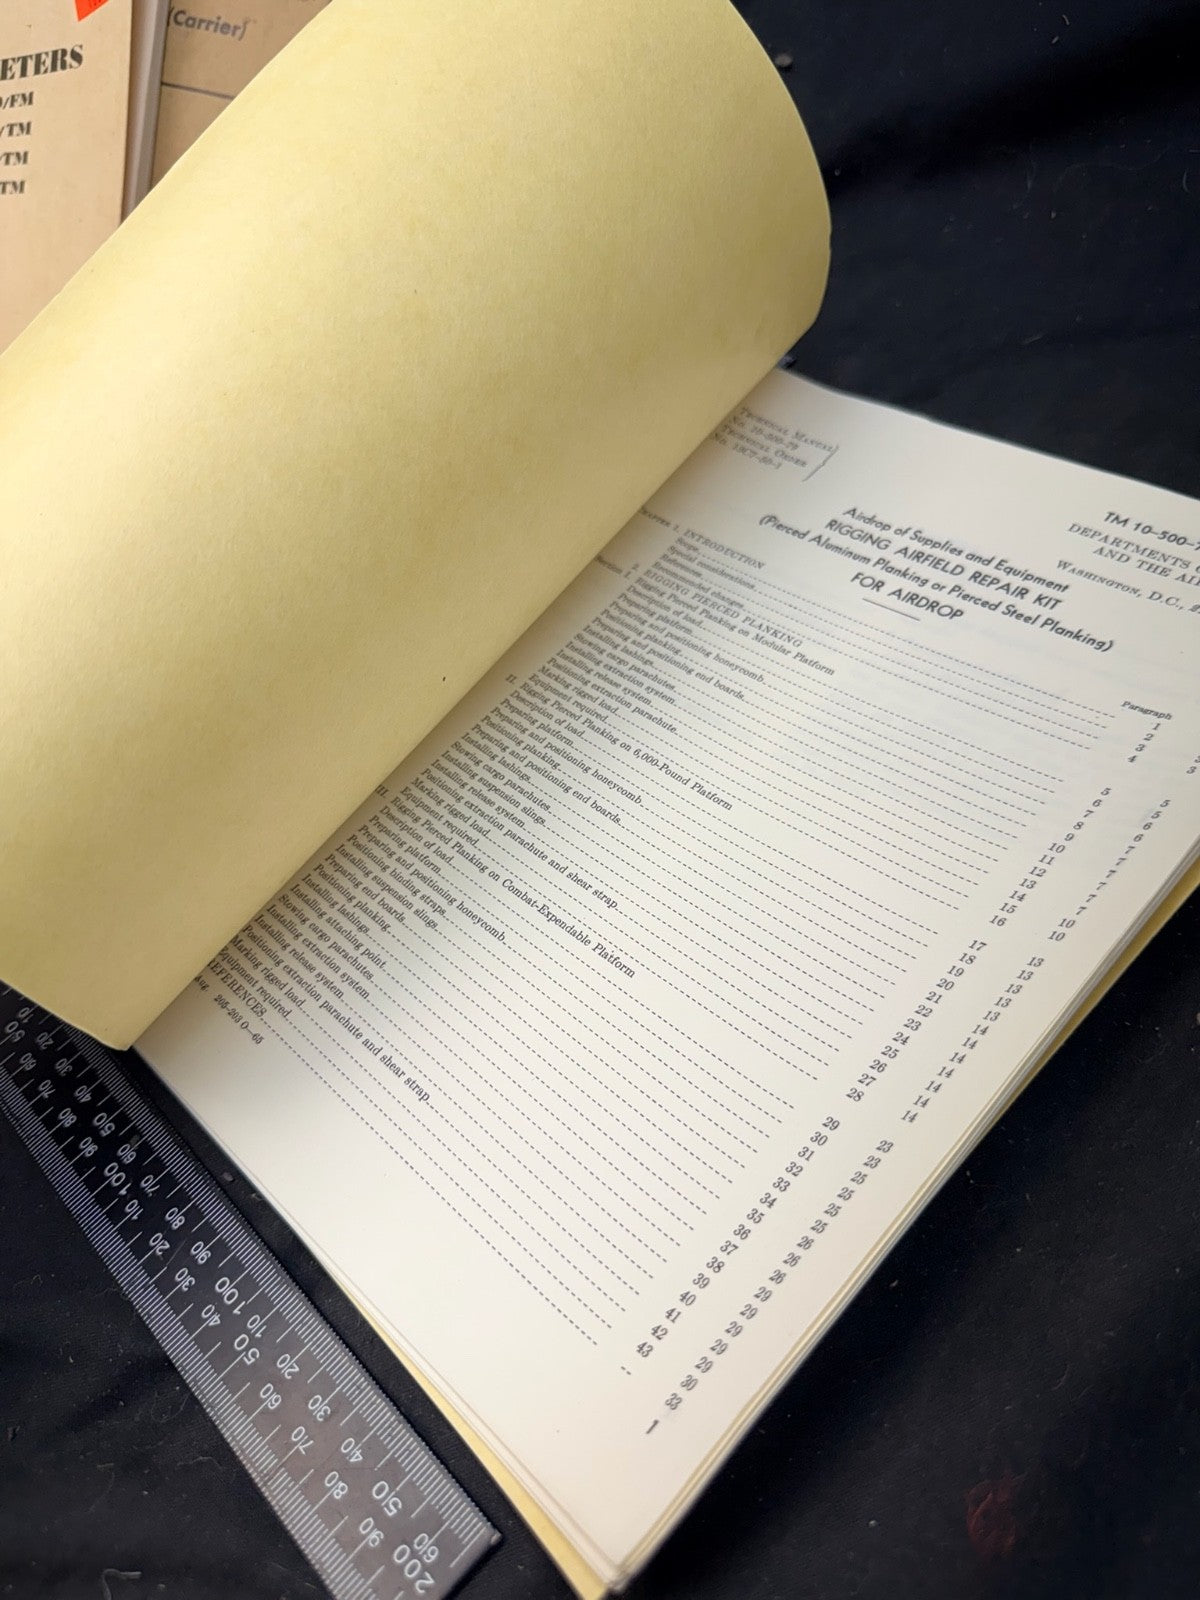 (Carrier)
ETERS
/FM
/TM
TM
TM
TECHNICAL MANUAL
No. 10-500-79
TECHNICAL ORDER
No. 13C7-50-1
TM 10-500-7
DEPARTMENTS
AND THE AI
WASHINGTON, D.C.,
Airdrop of Supplies and Equipment
RIGGING AIRFIELD REPAIR KIT
(Pierced Aluminum Planking or Pierced Steel Planking)
FOR AIRDROP
Paragraph
1. INTRODUCTION
Scope 1
Special considerations 2
References 3
Recommended changes 4
2. RIGGING PIERCED PLANKING
I. Rigging Pierced Planking on Modular Platform
Description of load 5 5
Preparing platform 6 5
Preparing and positioning honeycomb 7 6
Positioning planking 8 6
Preparing and positioning end boards 9 7
Installing lashings 10 7
Stowing cargo parachutes 11 7
Installing extraction system 12 7
Installing release system 13 7
Positioning extraction parachute 14 7
Marking rigged load 15 10
Equipment required 16 10
II. Rigging Pierced Planking on 6,000-Pound Platform
Description of load 17 13
Preparing platform 18 13
Preparing and positioning honeycomb 19 13
Positioning planking 20 13
Preparing and positioning end boards 21 13
Installing lashings 22 14
Stowing cargo parachutes 23 14
Installing suspension slings 24 14
Installing release system 25 14
Positioning extraction parachute and shear strap 26 14
Marking rigged load 27 14
Equipment required 28 14
III. Rigging Pierced Planking on Combat-Expendable Platform
Description of load 29 23
Preparing platform 30 23
Preparing and positioning honeycomb 31 25
Positioning binding straps 32 25
Installing suspension slings 33 25
Preparing end boards 34 25
Positioning planking 35 26
Installing lashings 36 26
Installing attaching point 37 26
Stowing cargo parachutes 38 29
Installing extraction system 39 29
Installing release system 40 29
Positioning extraction parachute and shear strap 41 29
Marking rigged load 42 29
Equipment required 43 30
REFERENCES -- 33
205-203 O—65
1
50 60 70 80 90 100 10 20 30 40 50 60 70 80 90 200
10 20 30 40 50 60 70 80 90 100 10 20 30 40 50 60